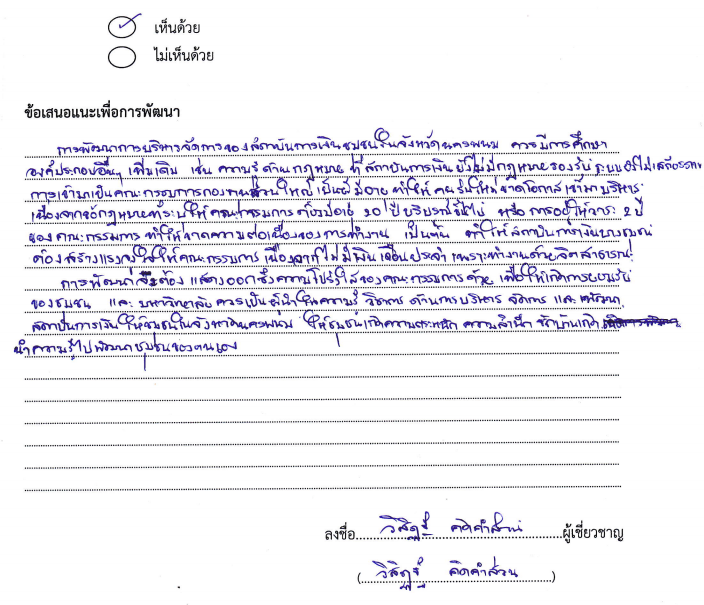 เห็นด้วย
ไม่เห็นด้วย
ข้อเสนอแนะเพื่อการพัฒนา
การพัฒนาการบริหารจัดการของสถาบันการเงินชุมชนในจังหวัดนครพนม ควรมีการศึกษา
องค์ประกอบอื่นๆ เพิ่มเติม เช่น ความรู้ด้านกฎหมาย ที่สถาบันการเงินยังไม่มีกฎหมายรองรับ
การเข้ามาเป็นคณะกรรมการกองทุนส่วนใหญ่เป็นผู้มีอายุ ทำให้คนรุ่นใหม่ขาดโอกาสเข้ามาบริหาร
เนื่องจากข้อกฎหมายที่ระบุให้คณะกรรมการต้องมีอายุ 20 ปีบริบูรณ์ขึ้นไป หรือ การอยู่ในวาระ 2 ปี
ของคณะกรรมการ ทำให้ขาดความต่อเนื่องของการทำงาน เป็นต้น ทำให้สถาบันการเงินชุมชน
ต้องสร้างแรงจูงใจให้คณะกรรมการ เนื่องจากไม่มีเงินเดือนประจำ เพราะทำงานด้วยจิตสาธารณะ
การพัฒนาจะต้องแสดงออกซึ่งความโปร่งใสของคณะกรรมการด้วย เพื่อให้เกิดการยอมรับ
ของชุมชน และ มหาวิทยาลัยควรเป็นผู้นำในความรู้ วิชาการ ด้านการบริหาร จัดการ และพัฒนา
สถาบันการเงินให้ชุมชนในจังหวัดนครพนม ให้ชุมชนเกิดความตระหนัก ความสำนึก
นำความรู้ไปพัฒนาชุมชนของตนเอง
ลงชื่อ วิสิฏฐ์ คิดคำส่วน ผู้เชี่ยวชาญ
( วิสิฏฐ์ คิดคำส่วน )